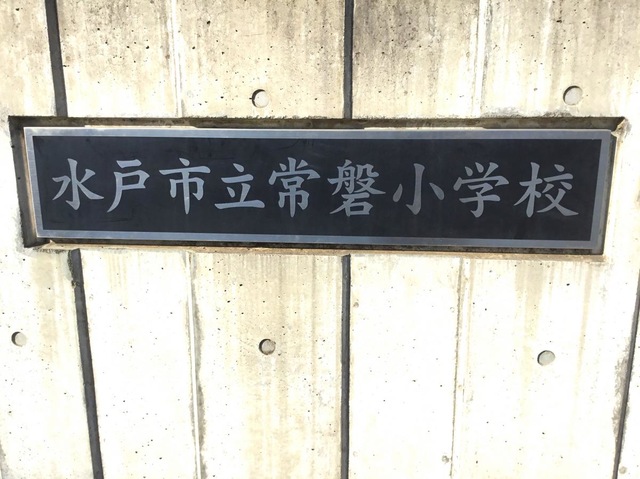 水戸市立常磐小学校